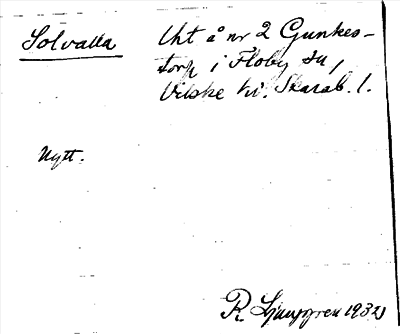 Solvalla
Uht å nr 2 Gunkes-
torp i Floby sn,
Vilske hd. Skarab. l.
Nytt.
R. Ljunggren 1932